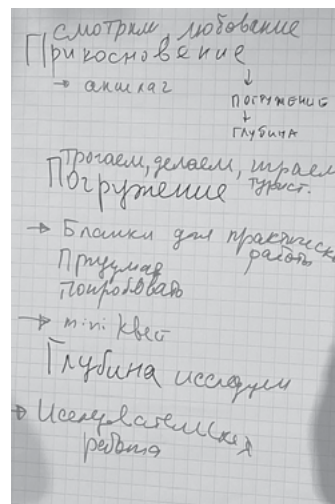 смотрим, любование
Прикосновение
→ аншлаг
↓
ПОГРУЖЕНИЕ
↓
ГЛУБИНА
Трогаем, делаем, играем
Погружение турист.
→ Бланки для практическ
работы
Придумал
попробовать
→ mini квест
Глубина исследуем
→ Исследовательская
работа